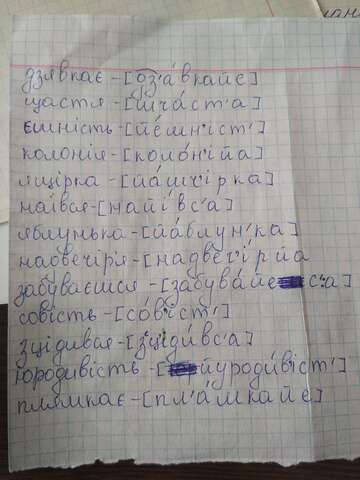 дзявкає - [дз'áвкайе]
щастя - [шчáст'а]
ємність - [йéмн'іст']
колонія - [колóн'ійа]
ящірка - [йáшч'ірка]
наївся - [найíвс'а]
яблунька - [йáблун'ка]
надвечір'я - [надвеч'íрйа
забуваєшся - [забувáйе с':а]
совість - [сóв'іст']
зцідився - [з'ц'ідúвс'а]
юродивість - [йуродúв'іст']
плямкає - [пл'áмкайе]